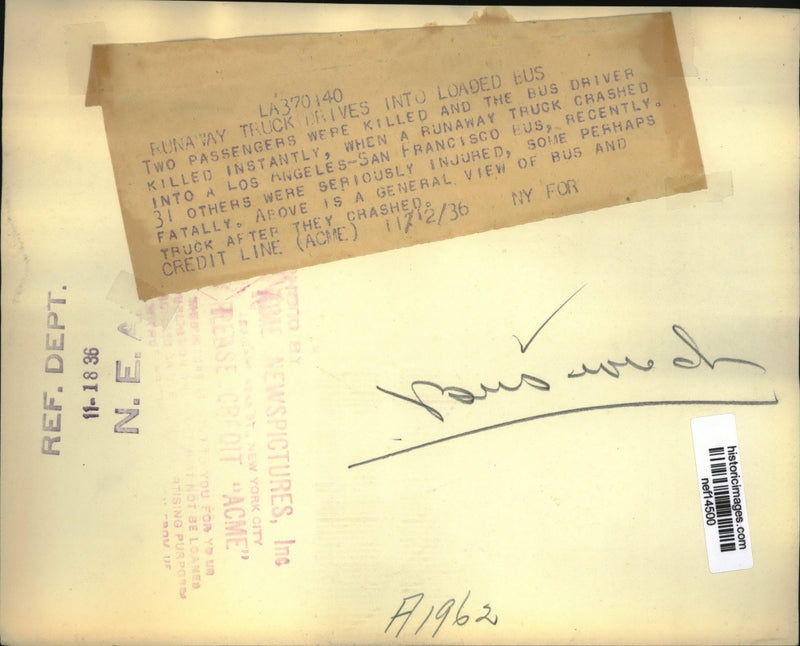 LA370140
RUNAWAY TRUCK DRIVES INTO LOADED BUS
TWO PASSENGERS WERE KILLED AND THE BUS DRIVER
KILLED INSTANTLY, WHEN A RUNAWAY TRUCK CRASHED
INTO A LOS ANGELES-SAN FRANCISCO BUS, RECENTLY.
31 OTHERS WERE SERIOUSLY INJURED, SOME PERHAPS
FATALLY. ABOVE IS A GENERAL VIEW OF BUS AND
TRUCK AFTER THEY CRASHED.
CREDIT LINE (ACME) 11/12/36 NY FOR
REF. DEPT.
11-18 36
N. E. A
PHOTO BY
NEWSPICTURES, Inc
NEW YORK CITY
CREDIT "ACME"
YOU FOR YOUR
NOT BE LOANED
TISING PURPOSES
historicimages.com
nef14500
A1962